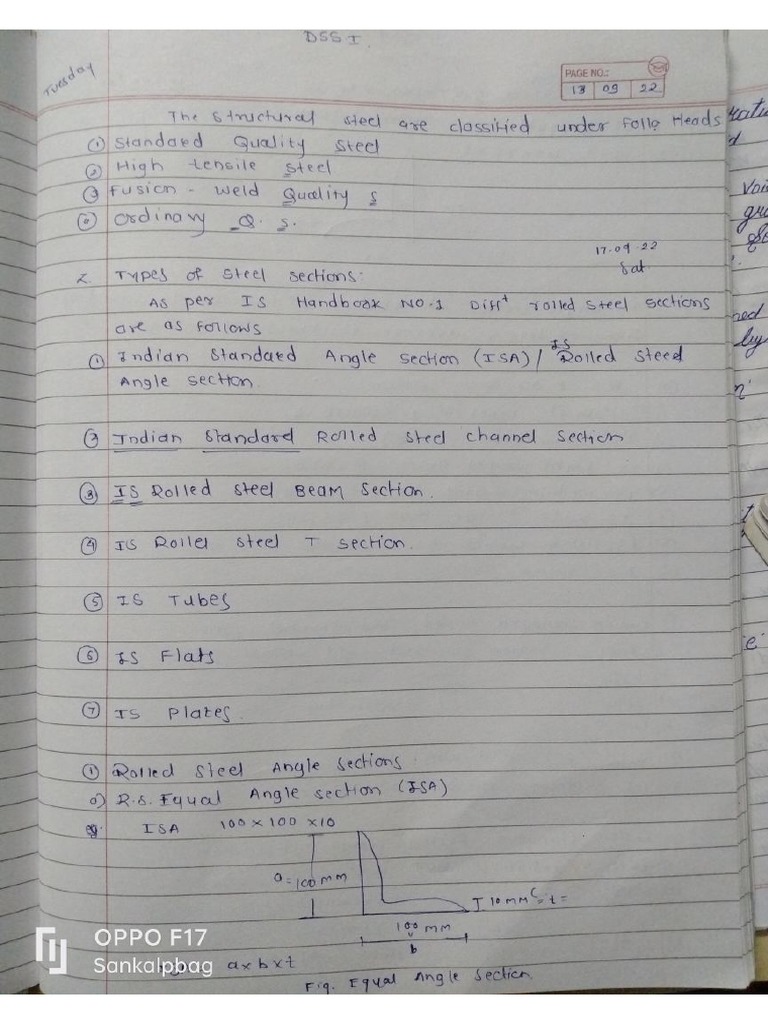 DSS I
Tuesday
PAGE NO.:
13 09 22
The structural steel are classified under Follo Heads
① Standard Quality Steel
② High tensile steel
③ Fusion - weld Quality s
④ ordinary Q. s.
17.09.22
Sat
2. Types of steel sections:
As per IS Handbook NO.1 Difft rolled steel sections
are as follows
① Indian Standard Angle section (ISA) / IS Rolled steel
Angle section.
② Indian Standard Rolled steel channel section
③ IS Rolled steel BEAM section.
④ IS Rolled steel T section.
⑤ IS Tubes
⑥ IS Flats
⑦ IS Plates.
① Rolled steel Angle sections
a) R.S. Equal Angle section (ISA)
eg. ISA 100 x 100 x 10
a = 100 mm
10 mm = t =
100 mm
b
a x b x t
Fig. Equal Angle section
OPPO F17
Sankalpbag